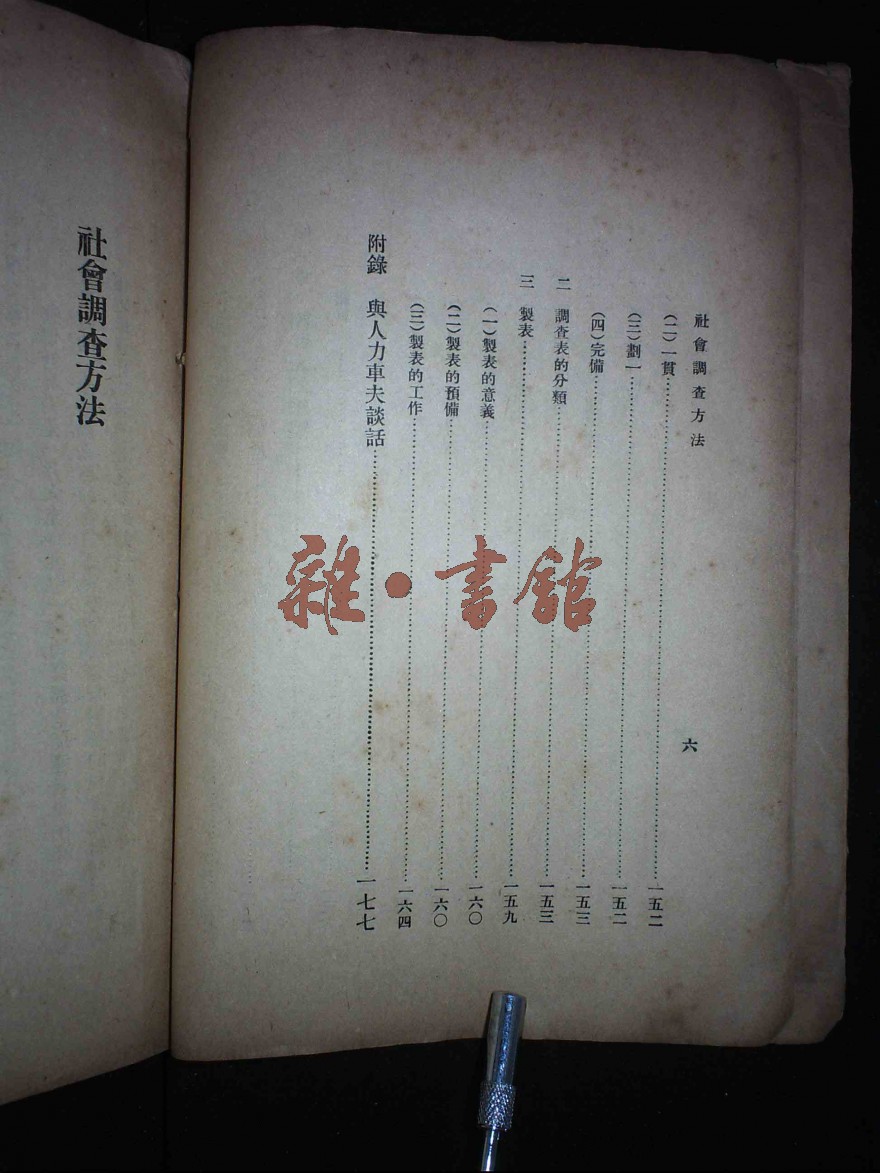 社會調查方法
六
（二）一貫……一五二
（三）劃一……一五二
（四）完備……一五三
二　調查表的分類……一五三
三　製表……一五九
（一）製表的意義……一六〇
（二）製表的預備……一六〇
（三）製表的工作……一六四
附錄　與人力車夫談話……一七七
社會調查方法
雜·書館